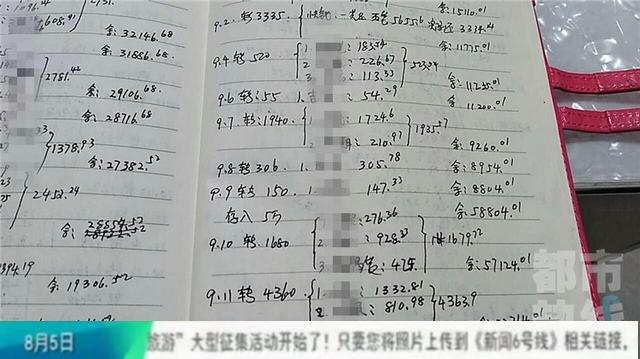 1608.91
余: 32146.68
余: 31886.68
2781.42
余: 29106.68
余: 28716.68
1378.93
余: 27382.52
2452.24
余: 19306.52
9.2. 转3335
余15110.01
9.4 转 520
1. : 183.34
2 : 226.67
3 : 113.33
523.34
余11775.01
余: 11255.01
9.6 转: 55 1. : 54.29
余: 11200.01
9.7. 转: 1940
1 : 1724.6
: 210.97
1935.57
余: 9260.01
9.8 转 306. 1. 305.78
余: 8954.01
9.9 转 150. 1. 147.33
余: 8804.01
存入 5万
余: 58804.01
9.10 转. 1680
1 : 276.36
2 : 928.33
3 : 475.
共1679.72
余: 57124.01
9.11 转 4360
1. : 1332.81
2 : 810.98
4363.9
都市热线
8月5日
旅游”大型征集活动开始了！只要您将照片上传到《新闻6号线》相关链接，